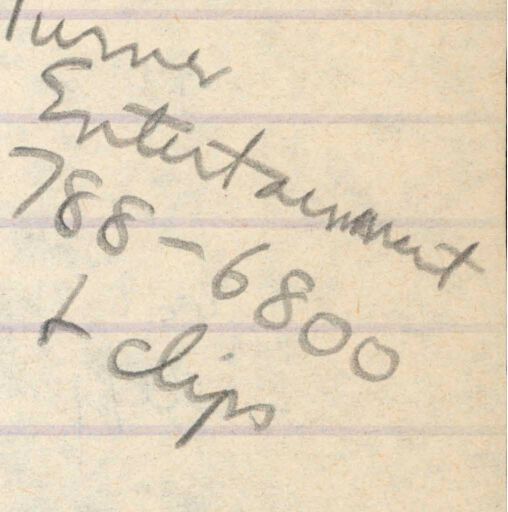 Turner
Entertainment
788-6800
+ clips